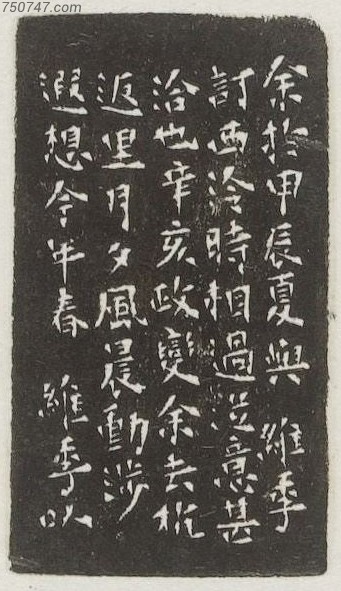 750747.com
余於甲辰夏與 維季
討西泠時相過從意甚
洽也辛亥政變余去杭
返里月夕風晨動涉
遐想今年春 維季以